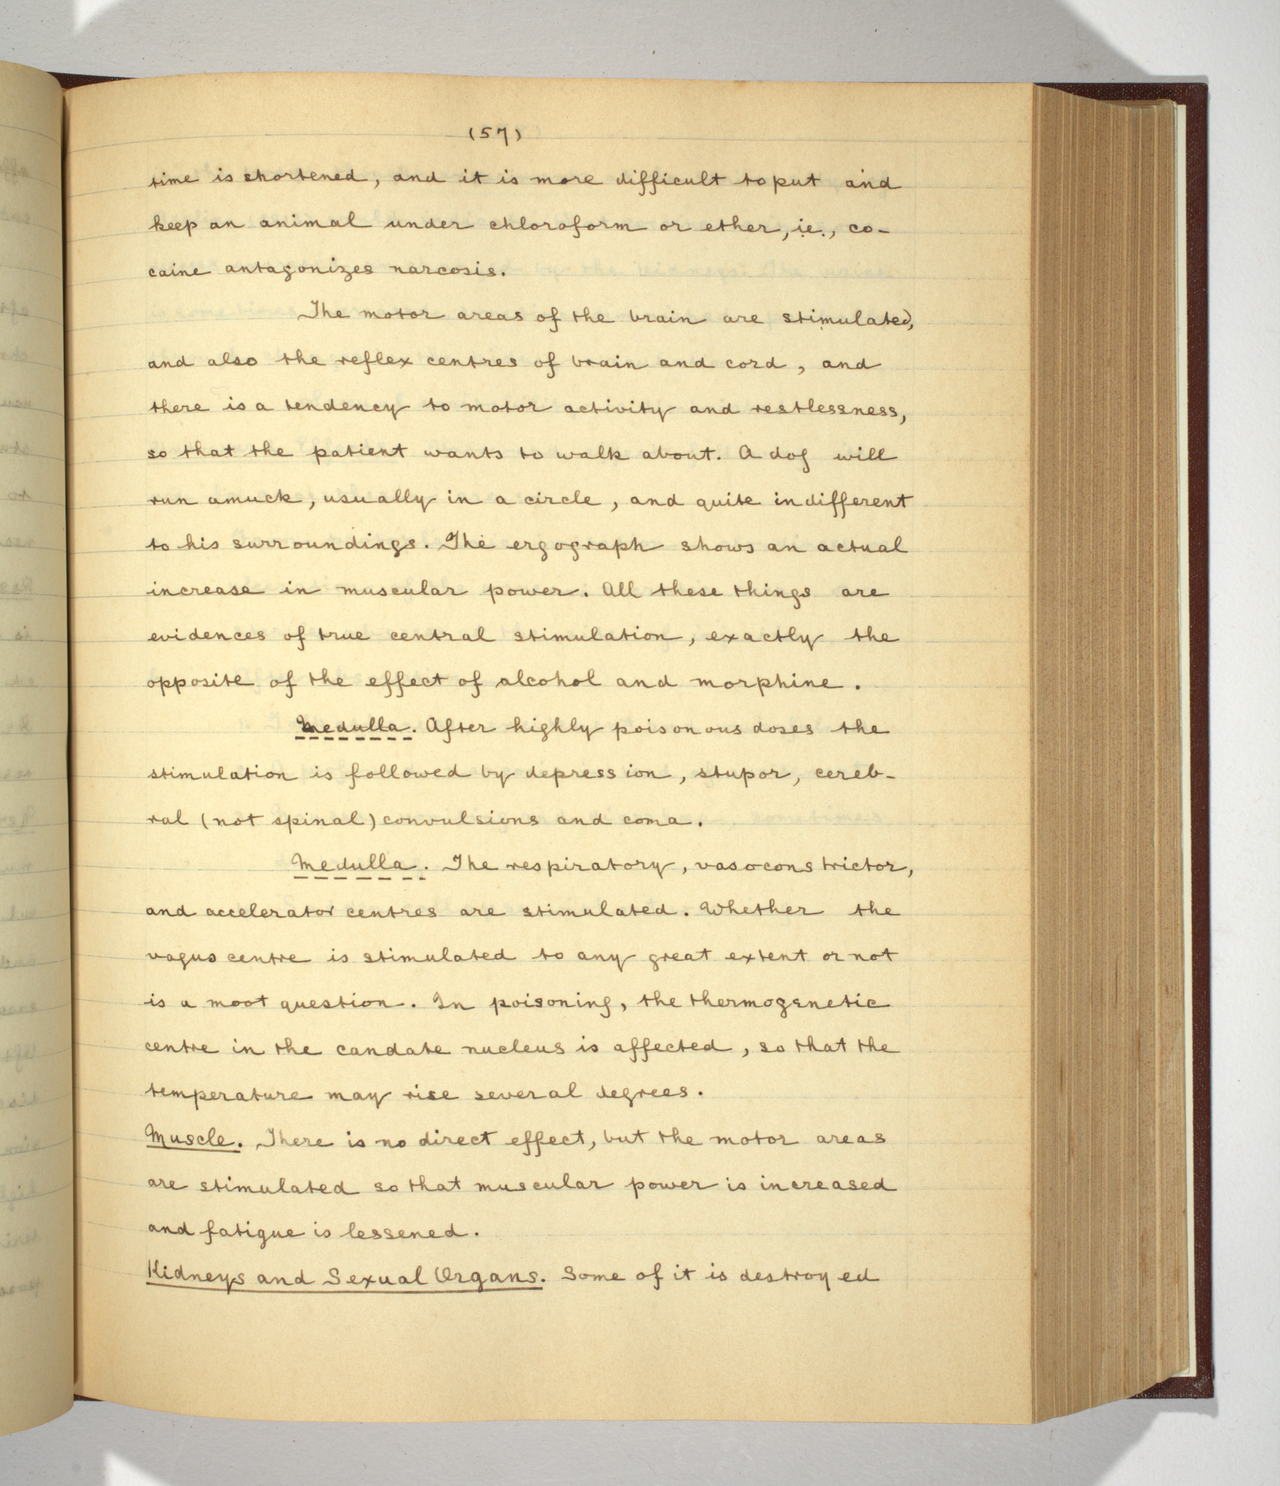 (57)
time is shortened, and it is more difficult to put and
keep an animal under chloroform or ether, ie., co-
caine antagonizes narcosis.
The motor areas of the brain are stimulated,
and also the reflex centres of brain and cord, and
there is a tendency to motor activity and restlessness,
so that the patient wants to walk about. A dog will
run amuck, usually in a circle, and quite indifferent
to his surroundings. The ergograph shows an actual
increase in muscular power. All these things are
evidences of true central stimulation, exactly the
opposite of the effect of alcohol and morphine.
Medulla. After highly poisonous doses the
stimulation is followed by depression, stupor, cereb-
ral (not spinal) convulsions and coma.
Medulla. The respiratory, vasoconstrictor,
and accelerator centres are stimulated. Whether the
vagus centre is stimulated to any great extent or not
is a moot question. In poisoning, the thermogenetic
centre in the candate nucleus is affected, so that the
temperature may rise several degrees.
Muscle. There is no direct effect, but the motor areas
are stimulated so that muscular power is increased
and fatigue is lessened.
Kidneys and Sexual Organs. Some of it is destroyed